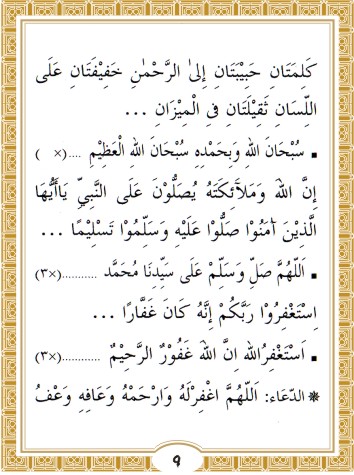 كَلِمَتَانِ حَبِيْبَتَانِ إِلىَ الرَّحْمٰنِ خَفِيْفَتَانِ عَلَى
اللِّسَانِ ثَقِيْلَتَانِ فِي الْمِيْزَانِ ...
▪ سُبْحَانَ الله وَبِحَمْدِهِ سُبْحَانَ الله الْعَظِيْمِ ....(× )
إِنَّ اللهَ وَمَلَآئِكَتَهُ يُصَلُّوْنَ عَلَى النَّبِيِّ يَاأَيُّهَا
الَّذِيْنَ آمَنُوْا صَلُّوْا عَلَيْهِ وَسَلِّمُوْا تَسْلِيْمًا ...
▪ اَللّٰهُمَّ صَلِّ وَسَلِّمْ عَلَى سَيِّدِنَا مُحَمَّد ...........(×٣)
اِسْتَغْفِرُوْا رَبَّكُمْ إِنَّهُ كَانَ غَفَّارًا ...
▪ اَسْتَغْفِرُالله اِنَّ اللهَ غَفُوْرٌ الرَّحِيْمٌ ............(×٣)
❋ الدُّعَاء: اَللّٰهُمَّ اغْفِرْلَهُ وَارْحَمْهُ وَعَافِهِ وَعْفُ
٩